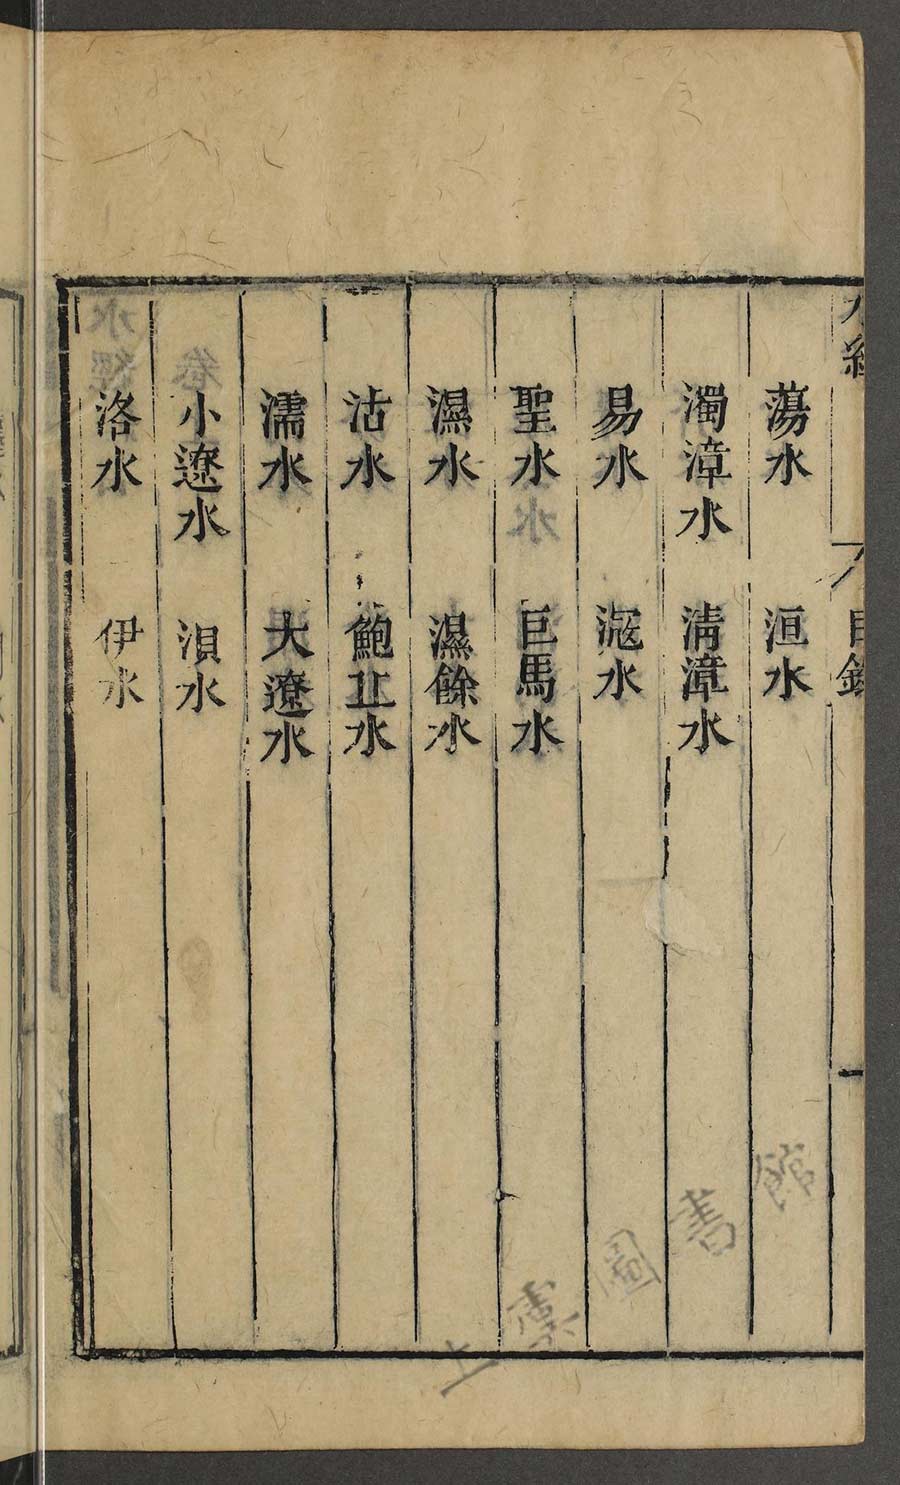 水經 目錄 一
蕩水 洹水
濁漳水 清漳水
易水 滱水
聖水 巨馬水
濕水 濕餘水
沽水 鮑丘水
濡水 大遼水
小遼水 浿水
洛水 伊水
上虞圖書館